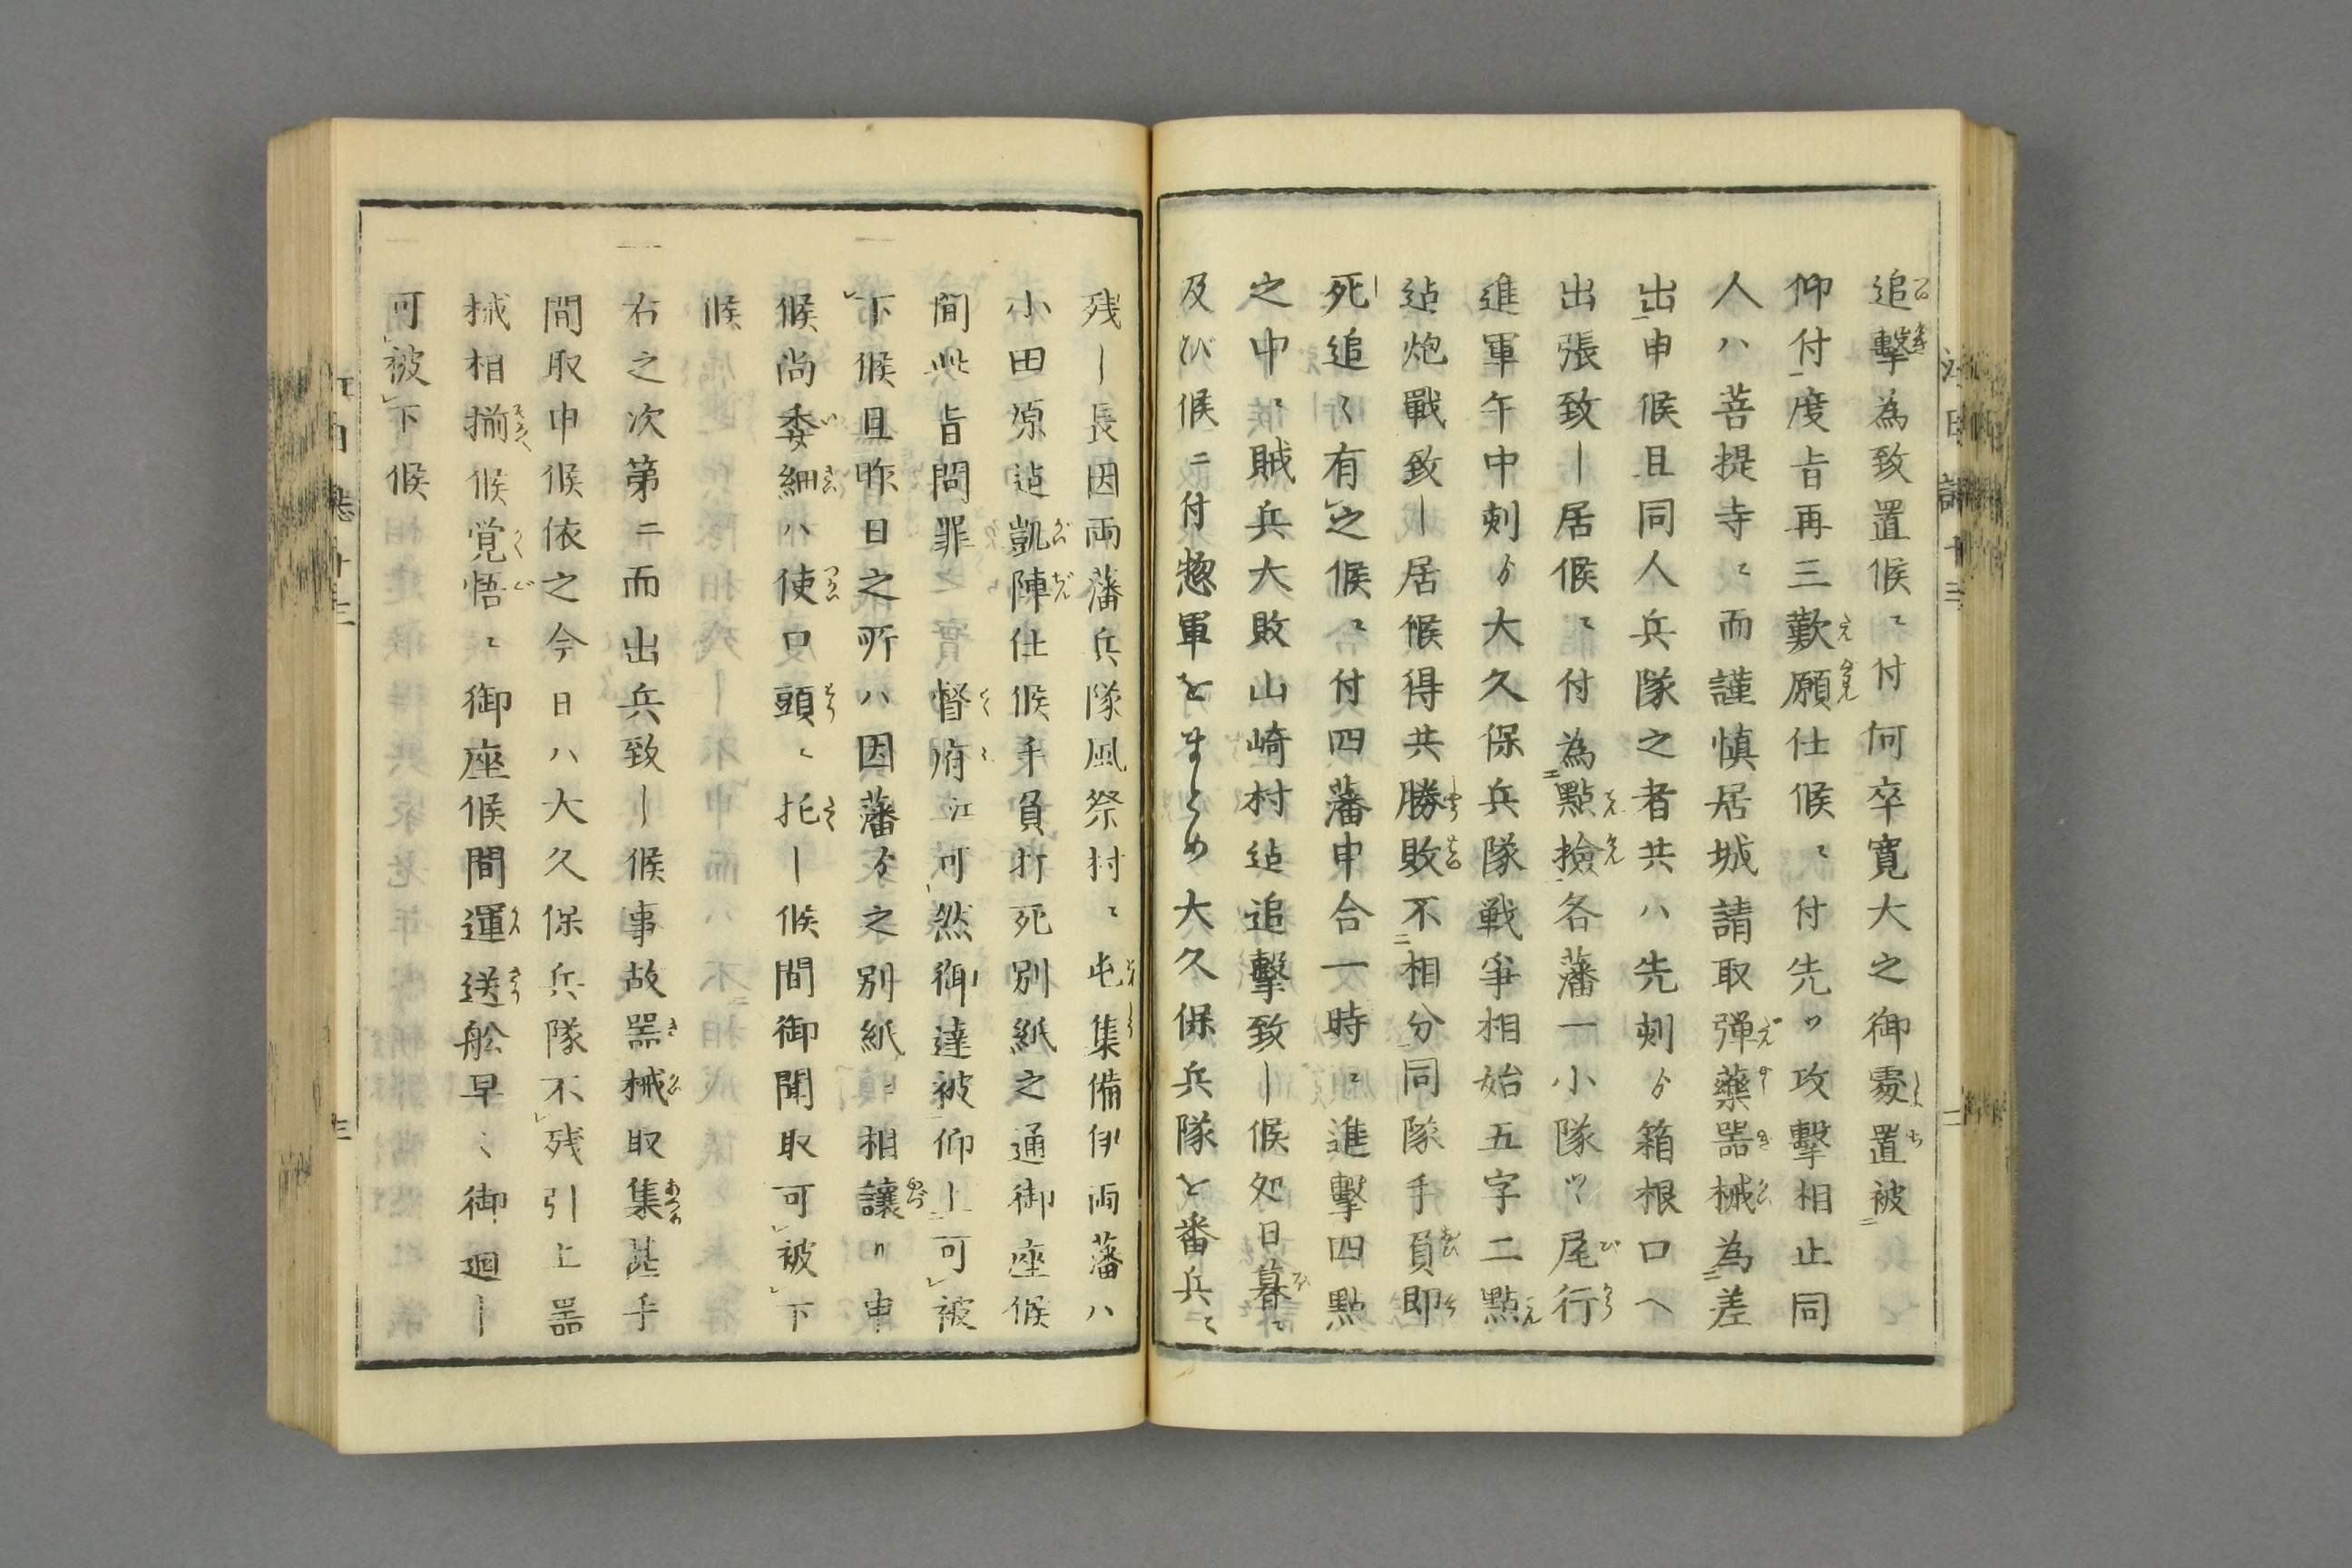 追擊為致置候ニ付何卒寛大之御處置被
仰付度旨再三歎願仕候ニ付先ツ攻擊相止同
人ハ菩提寺ニ而謹慎居城請取彈藥噐械為差
出申候且同人兵隊之者共ハ先刻ゟ箱根口ヘ
出張致し居候ニ付為點撿各藩一小隊ツヽ尾行
進軍午中刻ゟ大久保兵隊戦爭相始五字二點
迠炮戰致し居候得共勝敗不相分同隊手負即
死追々有之候ニ付四藩申合一時ニ進擊四點
之中ニ賊兵大敗山崎村迠追擊致し候処日暮ニ
及び候ニ付惣軍をまとめ大久保兵隊を番兵ニ
残し長因両藩兵隊風祭村ニ屯集備伊両藩ハ
小田原迠凱陣仕候手負打死別紙之通御座候
間此旨問罪督府江可然御達被仰し可被
下候且昨日之所ハ因藩ゟ之別紙ニ相讓り申
候尚委細ハ使口頭ニ托し候間御聞取可被下
候
一 右之次第ニ而出兵致し候事故噐械取集甚手
間取申候依之今日ハ大久保兵隊不残引上噐
械相揃候覚悟ニ御座候間運送舩早々御廻し
可被下候
江城日誌十三
二
三